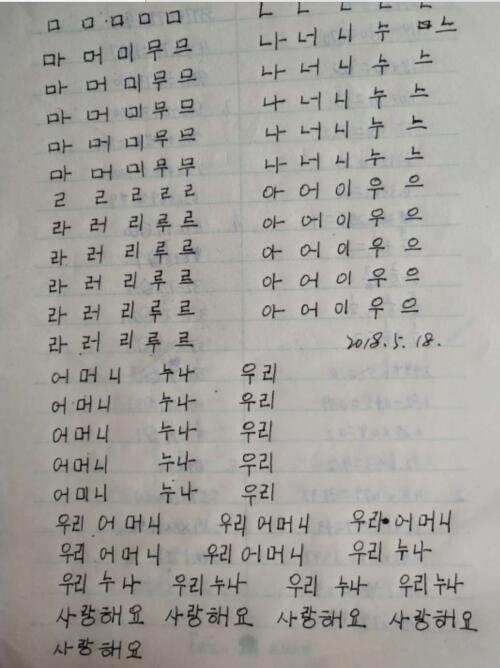 ㅁ ㅁ ㅁ ㅁ ㅁ
마 머 미 무 므
마 머 미 무 므
마 머 미 무 므
마 머 미 무 므
마 머 미 무 므
ㄹ ㄹ ㄹ ㄹ ㄹ
라 러 리 루 르
라 러 리 루 르
라 러 리 루 르
라 러 리 루 르
라 러 리 루 르
나 너 니 누 느
나 너 니 누 느
나 너 니 누 느
나 너 니 누 느
나 너 니 누 느
아 어 이 우 으
아 어 이 우 으
아 어 이 우 으
아 어 이 우 으
아 어 이 우 으
2018.5.18.
어머니 누나 우리
어머니 누나 우리
어머니 누나 우리
어머니 누나 우리
어미니 누나 우리
우리 어머니 우리 어머니 우리 어머니
우리 어머니 우리 어머니 우리 누나
우리 누나 우리 누나 우리 누나 우리 누나
사랑해요 사랑해요 사랑해요 사랑해요
사랑해요